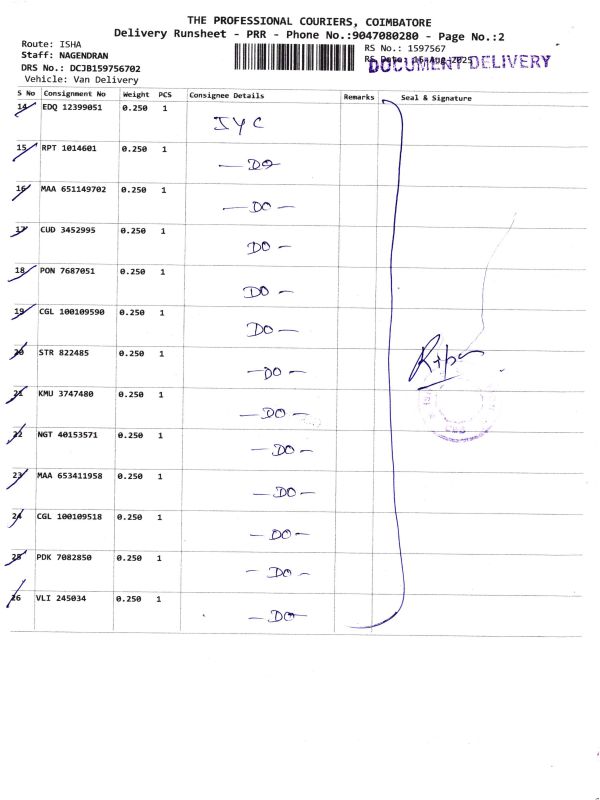 THE PROFESSIONAL COURIERS, COIMBATORE
Delivery Runsheet - PRR - Phone No.:9047080280 - Page No.:2
Route: ISHA
Staff: NAGENDRAN
DRS No.: DCJB159756702
Vehicle: Van Delivery
RS No.: 1597567
RS Date: 16-Aug-2025
DOCUMENT DELIVERY
S No Consignment No Weight PCS Consignee Details Remarks Seal & Signature
14 EDQ 12399051 0.250 1 IYC
15 RPT 1014601 0.250 1 — DO
16 MAA 651149702 0.250 1 — DO —
17 CUD 3452995 0.250 1 DO —
18 PON 7687051 0.250 1 DO —
19 CGL 100109590 0.250 1 DO —
20 STR 822485 0.250 1 — DO —
21 KMU 3747480 0.250 1 — DO —
22 NGT 40153571 0.250 1 — DO —
23 MAA 653411958 0.250 1 — DO —
24 CGL 100109518 0.250 1 — DO —
25 PDK 7082850 0.250 1 — DO —
26 VLI 245034 0.250 1 — DO —